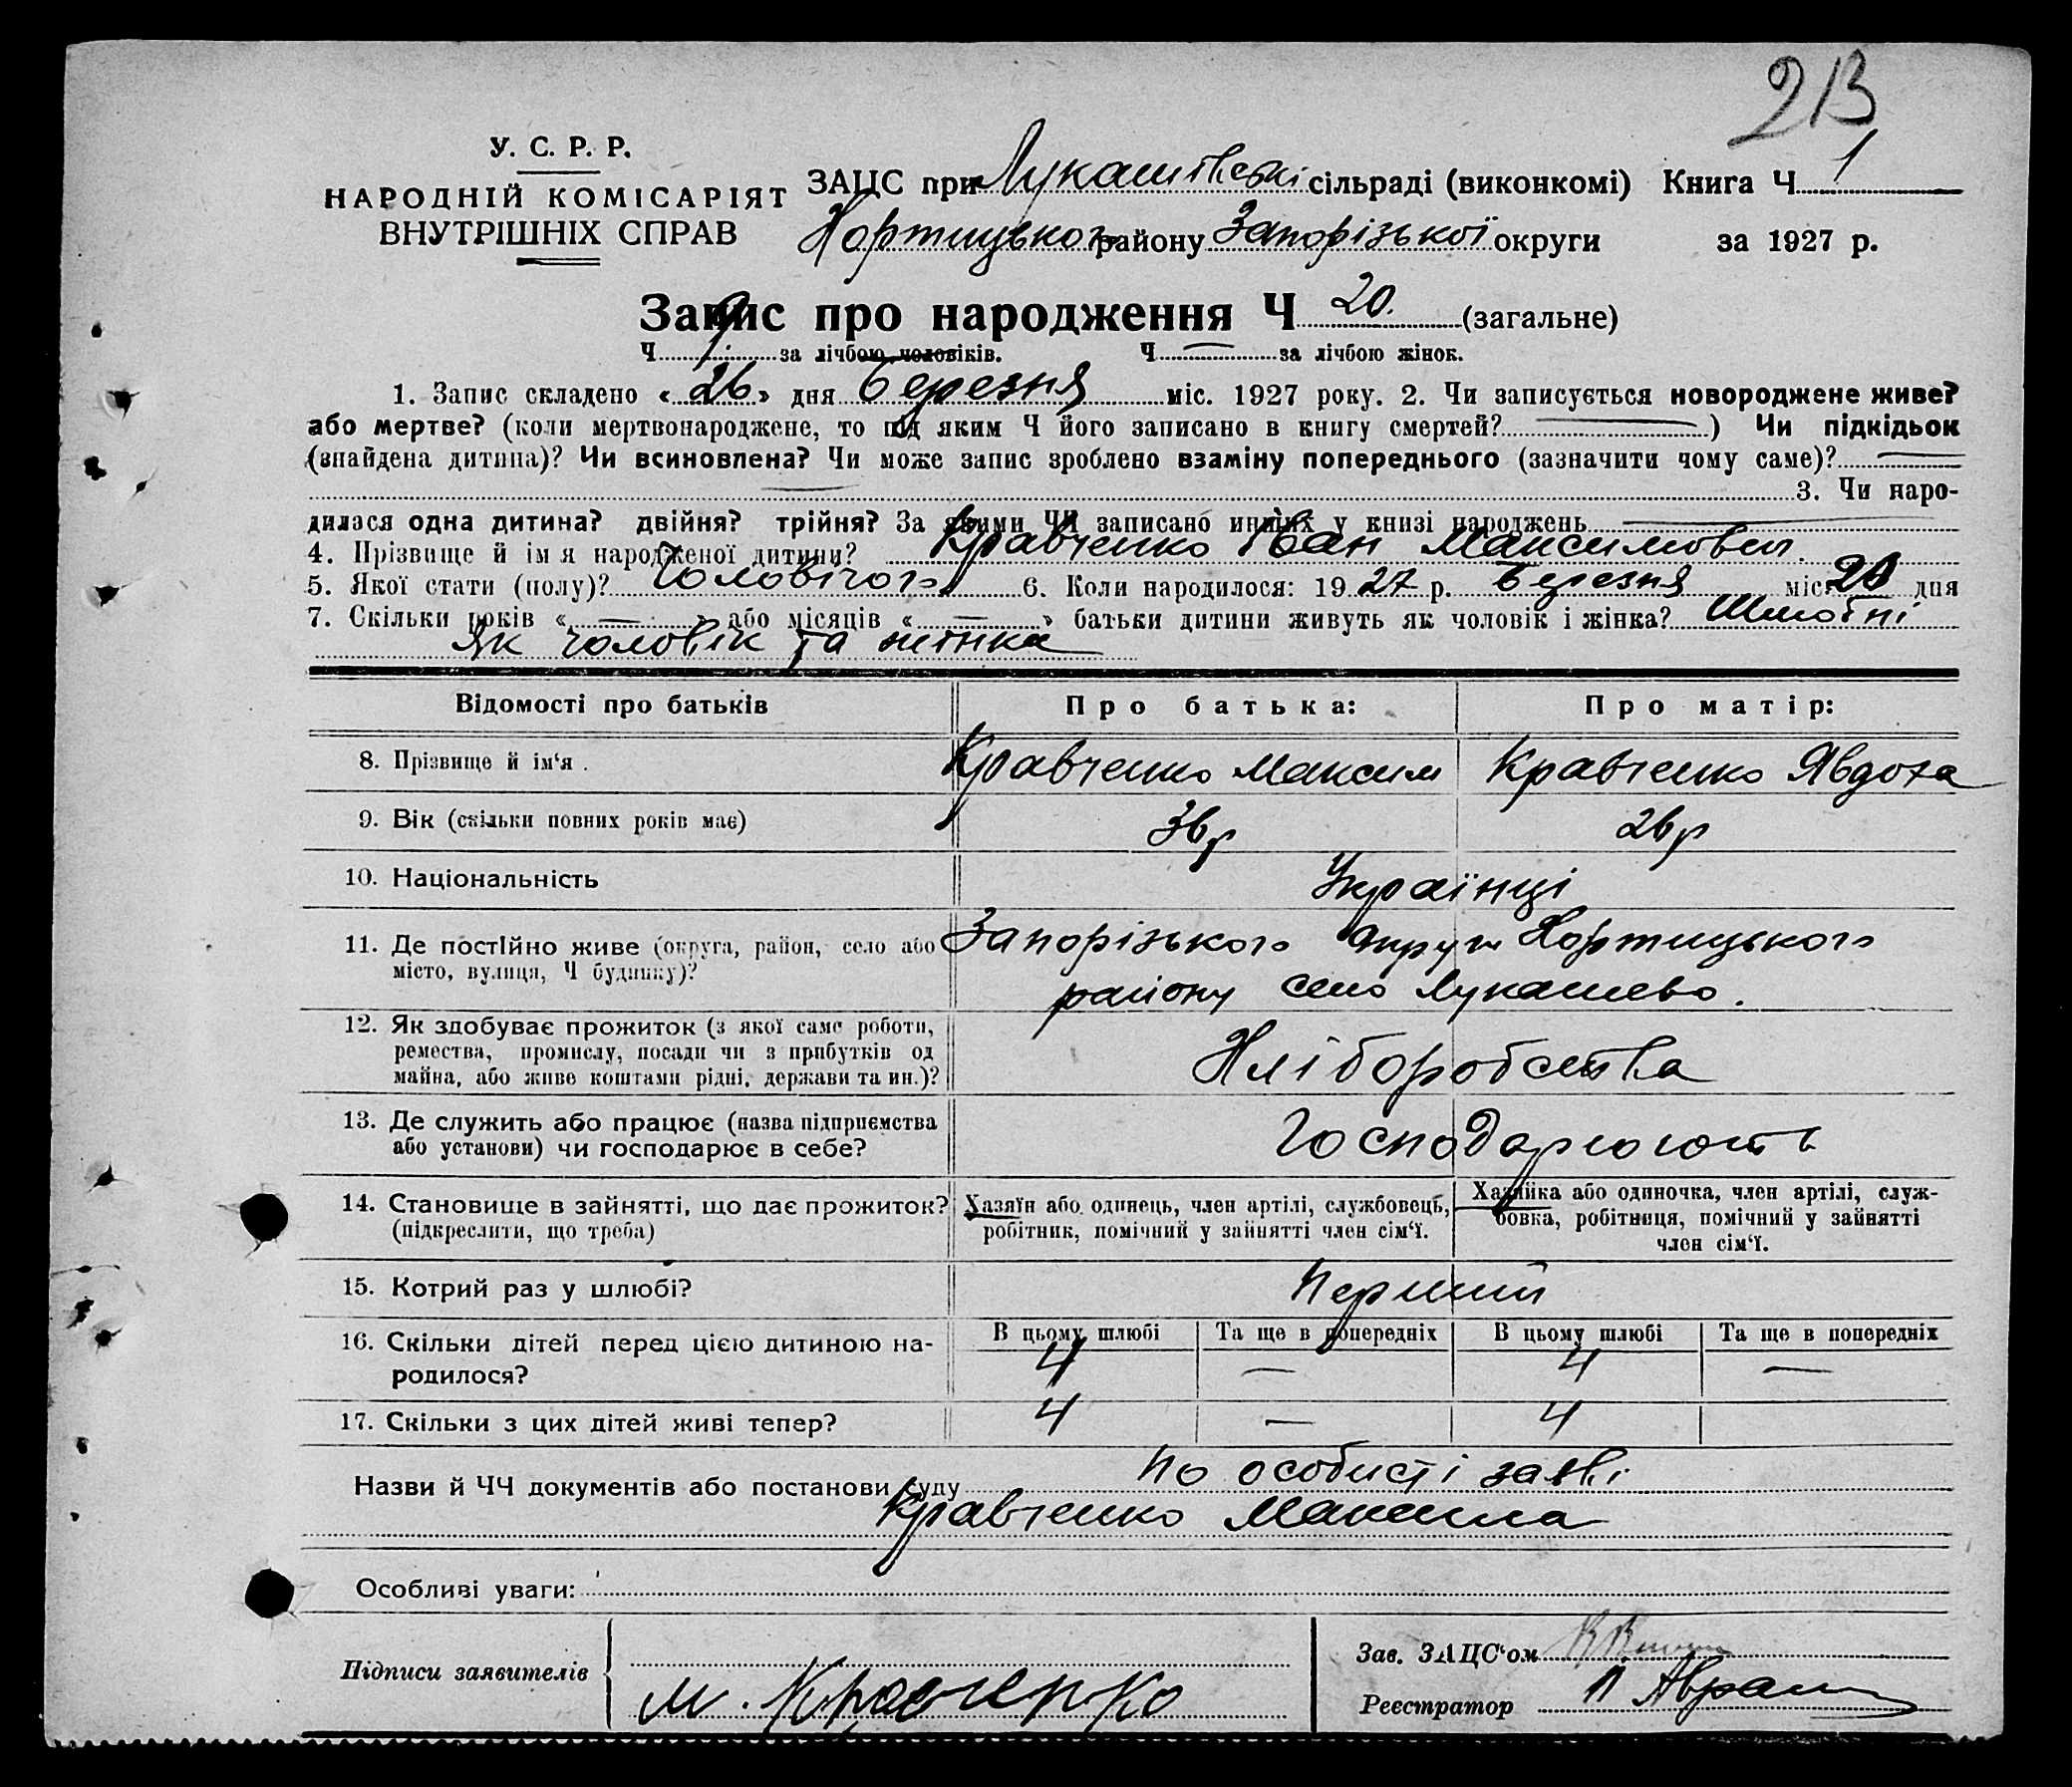 213
У. С. Р. Р.
НАРОДНІЙ КОМІСАРІЯТ
ВНУТРІШНІХ СПРАВ
ЗАЦС при Лукашівські сільраді (виконкомі) Книга Ч 1
Хортицького району Запорізької округи за 1927 р.
Запис про народження Ч 20. (загальне)
Ч 9. за лічбою чоловіків. Ч — за лічбою жінок.
1. Запис складено «26» дня Березня міс. 1927 року. 2. Чи записується новороджене живе?
або мертве? (коли мертвонароджене, то під яким Ч його записано в книгу смертей? —) Чи підкідьок
(знайдена дитина)? Чи всиновлена? Чи може запис зроблено взаміну попереднього (зазначити чому саме)? —
— 3. Чи наро-
дилася одна дитина? двійня? трійня? За якими ЧЧ записано инших у книзі народжень —
4. Прізвище й імя народженої дитини? Кравченко Іван Максимович.
5. Якої стати (полу)? Чоловічого 6. Коли народилося: 1927 р. Березня міс. дня
7. Скільки років «—» або місяців «—» батьки дитини живуть як чоловік і жінка? Шлюбні
Як чоловік та жінка
Відомості про батьків Про батька: Про матір:
8. Прізвище й ім‘я . Кравченко Максим Кравченко Явдоха
9. Вік (скільки повних років має) 36 р 26 р
10. Національність Українці
11. Де постійно живе (округа, район, село або Запорізького округи Хортицького
місто, вулиця, Ч будинку)? району село Лукашево.
12. Як здобуває прожиток (з якої саме роботи,
ремества, промислу, посади чи з прибутків од Хліборобства
майна, або живе коштами рідні, держави та ин.)?
13. Де служить або працює (назва підприємства Господарюють
або установи) чи господарює в себе?
14. Становище в зайнятті, що дає прожиток? Хазяїн або одинець, член артілі, службовець, Хазяйка або одиночка, член артілі, служ-
(підкреслити, що треба) робітник, помічний у зайнятті член сім‘ї. бовка, робітниця, помічний у зайнятті
член сім‘ї.
15. Котрий раз у шлюбі? Перший
16. Скільки дітей перед цією дитиною на- В цьому шлюбі Та ще в попередніх В цьому шлюбі Та ще в попередніх
родилося? 4 — 4 —
17. Скільки з цих дітей живі тепер? 4 — 4
Назви й ЧЧ документів або постанови суду по особисті заяві
Кравченко Максима
Особливі уваги:
Зав. ЗАЦС‘ом
Підписи заявителів М. Кравченко
Реєстратор